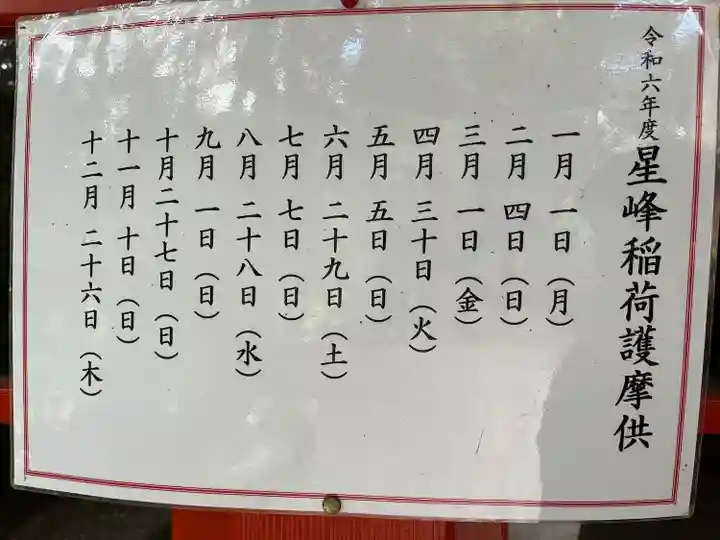 令和六年度 星峰稲荷護摩供
一月 一日（月）
二月 四日（日）
三月 一日（金）
四月 三十日（火）
五月 五日（日）
六月 二十九日（土）
七月 七日（日）
八月 二十八日（水）
九月 一日（日）
十月二十七日（日）
十一月 十日（日）
十二月 二十六日（木）